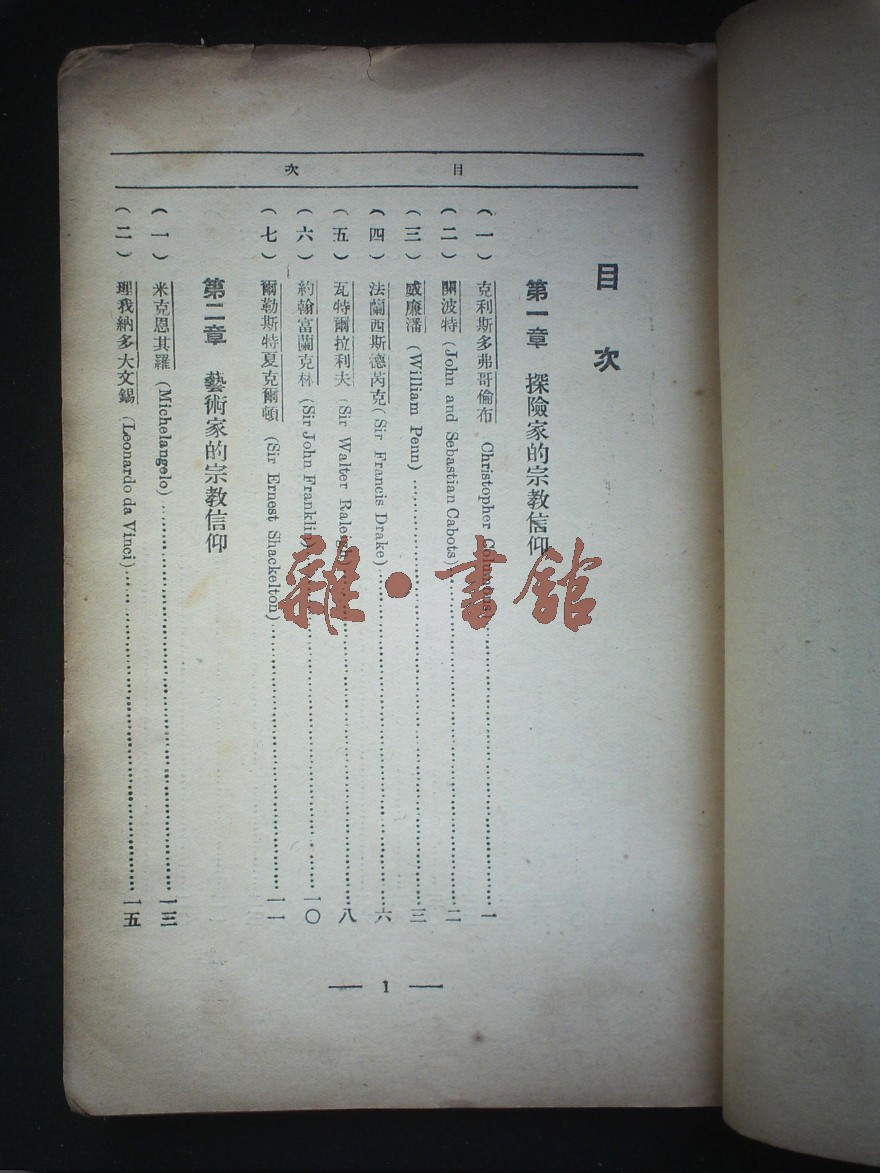 目次
目次
第一章 探險家的宗教信仰
(一) 克利斯多弗哥倫布 Christopher Columbus)……一
(二) 關波特(John and Sebastian Cabots)……二
(三) 威廉潘 (William Penn)……三
(四) 法蘭西斯德芮克(Sir Francis Drake)……六
(五) 瓦特爾拉利夫 (Sir Walter Raleigh)……八
(六) 約翰富蘭克林 (Sir John Franklin)……一〇
(七) 爾勒斯特夏克爾頓 (Sir Ernest Shackelton)……一一
第二章 藝術家的宗教信仰
(一) 米克恩其羅 (Michelangelo)……一三
(二) 理我納多大文錫 (Leonardo da Vinci)……一五
— 1 —
雜·書館